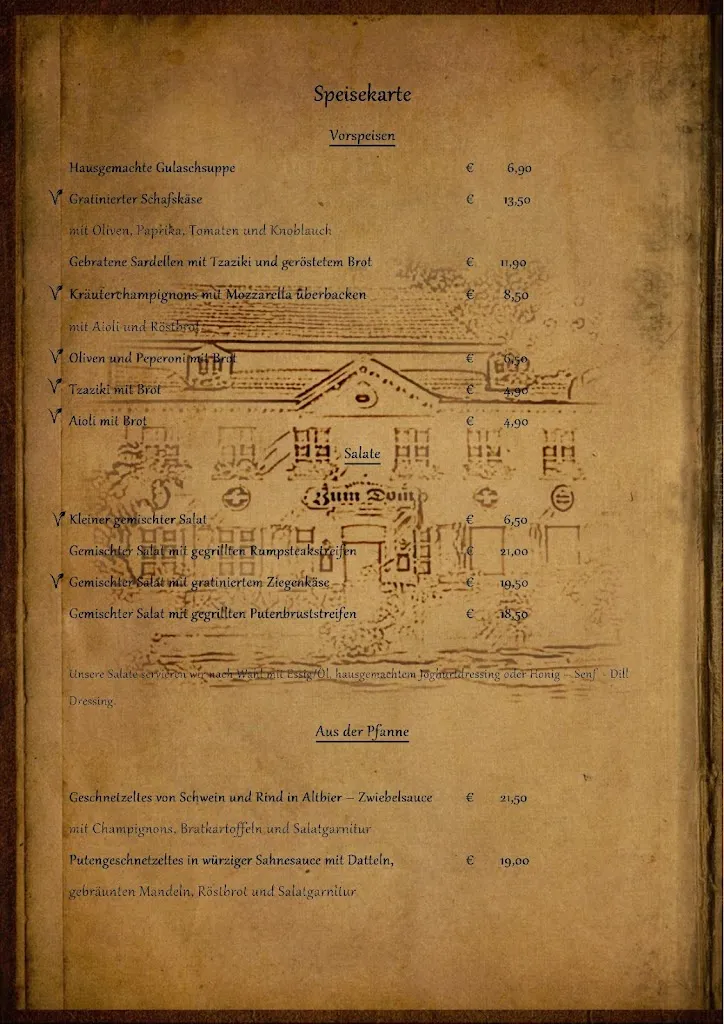 Speisekarte
Vorspeisen
Hausgemachte Gulaschsuppe € 6,90
Gratinierter Schafskäse € 13,50
mit Oliven, Paprika, Tomaten und Knoblauch
Gebratene Sardellen mit Tzaziki und geröstetem Brot € 11,90
Kräuterchampignons mit Mozzarella überbacken € 8,50
mit Aioli und Röstbrot
Oliven und Peperoni mit Brot € 6,50
Tzaziki mit Brot € 4,90
Aioli mit Brot € 4,90
Salate
Zum Domp
Kleiner gemischter Salat € 6,50
Gemischter Salat mit gegrillten Rumpsteakstreifen € 21,00
Gemischter Salat mit gratiniertem Ziegenkäse € 19,50
Gemischter Salat mit gegrillten Putenbruststreifen € 18,50
Unsere Salate servieren wir nach Wahl mit Essig/Öl, hausgemachtem Joghurtdressing oder Honig – Senf - Dill
Dressing.
Aus der Pfanne
Geschnetzeltes von Schwein und Rind in Altbier – Zwiebelsauce € 21,50
mit Champignons, Bratkartoffeln und Salatgarnitur
Putengeschnetzeltes in würziger Sahnesauce mit Datteln, € 19,00
gebräunten Mandeln, Röstbrot und Salatgarnitur